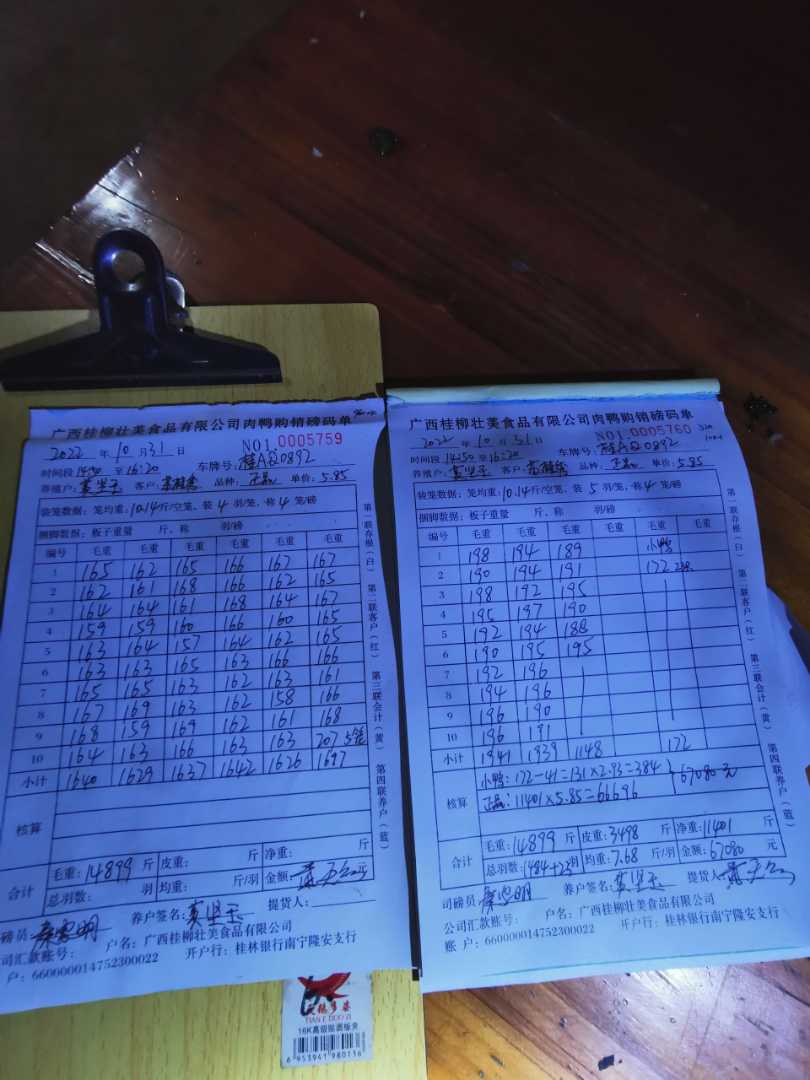 广西桂柳壮美食品有限公司肉鸭购销磅码单
NO1 0005759
2022 年 10 月 31 日
时间段 14:50 至 16:20 车牌号: 桂AQ0892
养殖户: 客户: 品种: 正品 单价: 5.85
装笼数据: 笼均重: 10.14 斤/空笼, 装 4 羽/笼, 称 4 笼/磅
捆脚数据: 板子重量 斤、称 羽/磅
编号 毛重 毛重 毛重 毛重 毛重 毛重
1 165 162 165 166 167 167
2 162 161 168 166 162 165
3 164 164 161 168 164 167
4 159 159 160 166 160 165
5 163 164 157 164 162 165
6 163 163 165 163 166 166
7 165 165 163 162 163 161
8 167 169 163 162 158 166
9 168 159 169 162 161 168
10 164 163 166 163 163 207 5笼
小计 1640 1629 1637 1642 1626 1697
核算
合计 毛重: 14899 斤 皮重: 斤 净重: 斤
总羽数: 羽 均重: 斤/羽 金额: 元
磅员: 养户签名: 提货人:
司汇款账号: 户名: 广西桂柳壮美食品有限公司
户: 660000014752300022 开户行: 桂林银行南宁隆安支行
第一联存根(白) 第二联客户(红) 第三联会计(黄) 第四联养户(蓝)
TIAN E DUO ZI
16K高级贴面板夹
6 953941 980116
广西桂柳壮美食品有限公司肉鸭购销磅码单
NO1 0005760
2022 年 10 月 31 日
时间段 14:50 至 16:20 车牌号: 桂AQ0892
养殖户: 客户: 品种: 正品 单价: 5.85
装笼数据: 笼均重: 10.14 斤/空笼, 装 5 羽/笼, 称 4 笼/磅
捆脚数据: 板子重量 斤、称 羽/磅
编号 毛重 毛重 毛重 毛重 毛重 毛重
1 198 194 189 小鸭
2 190 194 191 172
3 198 192 195
4 195 197 190
5 192 194 188
6 190 195 195
7 192 196
8 194 196
9 196 190
10 196 191
小计 1941 1939 1148 172
核算 小鸭: 172-41=131×2.93=384
正品: 11401×5.85=66696 } 67080元
合计 毛重: 14899 斤 皮重: 3498 斤 净重: 11401 斤
总羽数: 1484+25 羽 均重: 7.68 斤/羽 金额: 67080 元
司磅员: 养户签名: 提货人:
公司汇款账号: 户名: 广西桂柳壮美食品有限公司
账 户: 660000014752300022 开户行: 桂林银行南宁隆安支行
第一联存根(白) 第二联客户(红) 第三联会计(黄) 第四联养户(蓝)